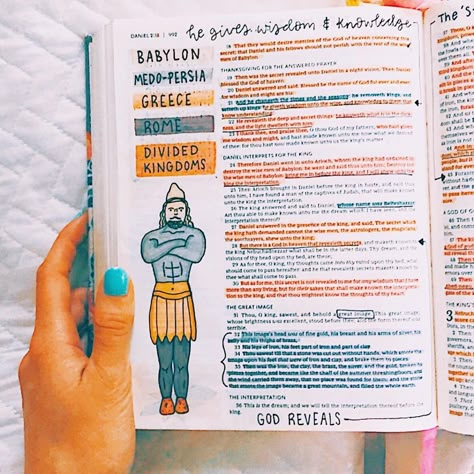 DANIEL 2:18 | 992
he gives wisdom & knowledge
The 'S
BABYLON
MEDO-PERSIA
GREECE
ROME
DIVIDED
KINGDOMS
18 That they would desire mercies of the God of heaven concerning this
secret; that Daniel and his fellows should not perish with the rest of the wise
men of Babylon.
THANKSGIVING FOR THE ANSWERED PRAYER
19 Then was the secret revealed unto Daniel in a night vision. Then Daniel
blessed the God of heaven.
20 Daniel answered and said, Blessed be the name of God for ever and ever:
for wisdom and might are his:
21 And he changeth the times and the seasons: he removeth kings, and
setteth up kings: he giveth wisdom unto the wise, and knowledge to them that
know understanding:
22 He revealeth the deep and secret things: he knoweth what is in the dark-
ness, and the light dwelleth with him.
23 I thank thee, and praise thee, O thou God of my fathers, who hast given
me wisdom and might, and hast made known unto me now what we desired
of thee: for thou hast now made known unto us the king's matter.
DANIEL INTERPRETS FOR THE KING
24 Therefore Daniel went in unto Arioch, whom the king had ordained to
destroy the wise men of Babylon: he went and said thus unto him; Destroy not
the wise men of Babylon: bring me in before the king, and I will shew unto the
king the interpretation.
25 Then Arioch brought in Daniel before the king in haste, and said thus
unto him, I have found a man of the captives of Judah, that will make known
unto the king the interpretation.
26 The king answered and said to Daniel, whose name was Belteshazzar,
Art thou able to make known unto me the dream which I have seen, and the
interpretation thereof?
27 Daniel answered in the presence of the king, and said, The secret which
the king hath demanded cannot the wise men, the astrologers, the magicians,
the soothsayers, shew unto the king;
28 But there is a God in heaven that revealeth secrets, and maketh known to
the king Nebuchadnezzar what shall be in the latter days. Thy dream, and the
visions of thy head upon thy bed, are these;
29 As for thee, O king, thy thoughts came into thy mind upon thy bed, what
should come to pass hereafter: and he that revealeth secrets maketh known to
thee what shall come to pass.
30 But as for me, this secret is not revealed to me for any wisdom that I have
more than any living, but for their sakes that shall make known the interpreta-
tion to the king, and that thou mightest know the thoughts of thy heart.
THE GREAT IMAGE
31 Thou, O king, sawest, and behold a great image. This great image,
whose brightness was excellent, stood before thee; and the form thereof was
terrible.
32 This image's head was of fine gold, his breast and his arms of silver, his
belly and his thighs of brass,
33 His legs of iron, his feet part of iron and part of clay.
34 Thou sawest till that a stone was cut out without hands, which smote the
image upon his feet that were of iron and clay, and brake them to pieces.
35 Then was the iron, the clay, the brass, the silver, and the gold, broken to
pieces together, and became like the chaff of the summer threshingfloors; and
the wind carried them away, that no place was found for them: and the stone
that smote the image became a great mountain, and filled the whole earth.
THE INTERPRETATION
36 This is the dream; and we will tell the interpretation thereof before the
king.
GOD REVEALS